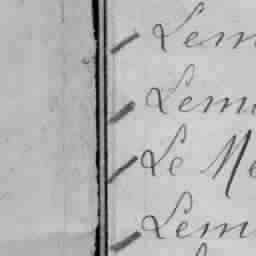 Lem
Lem
Le Me
Lem